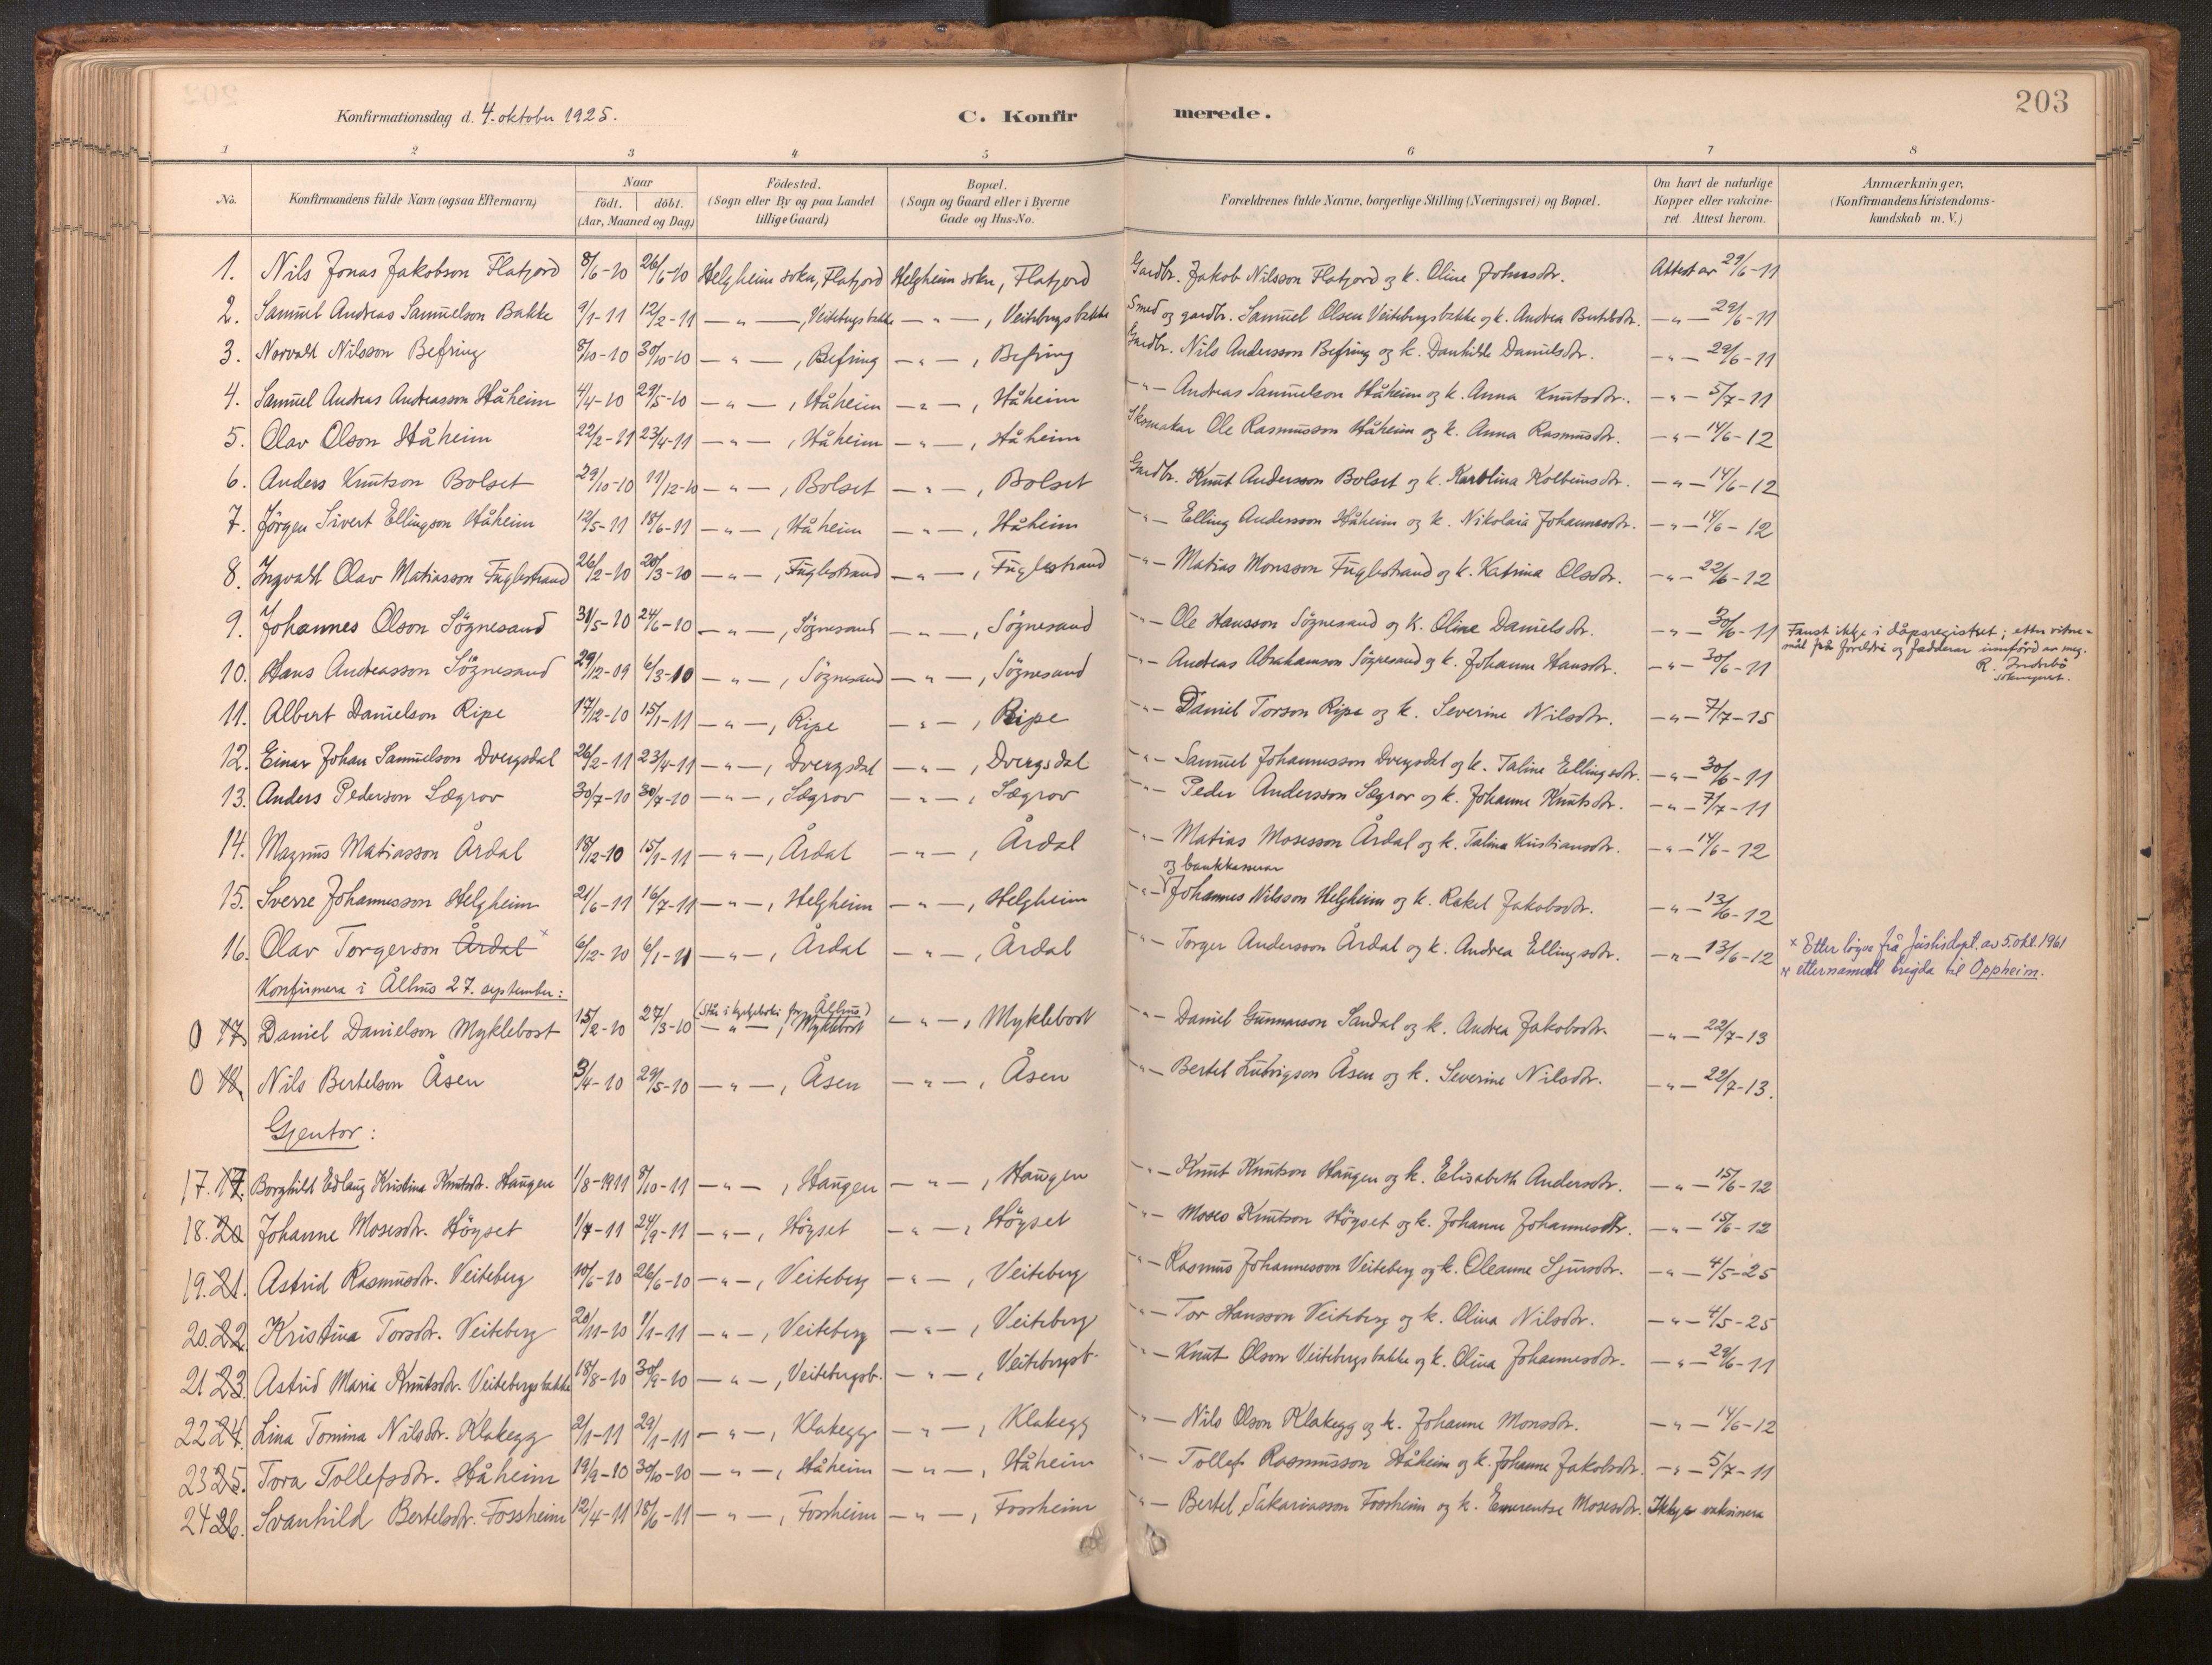 203
Konfirmationsdag d. 4. oktober 1925.
C. Konfirmerede.
1 2 3 4 5 6 7 8
No. Konfirmandens fulde Navn (ogsaa Efternavn) Naar født. døbt. (Aar, Maaned og Dag) Födested. (Sogn eller By og paa Landet tillige Gaard) Bopæl. (Sogn og Gaard eller i Byerne Gade og Hus-No. Forældrenes fulde Navne, borgerlige Stilling (Næringsvei) og Bopæl. Om havt de naturlige Kopper eller vakcineret Attest herom. Anmærkninger, (Konfirmandens Kristendomskundskab m. V.)
1. Nils Jonas Jakobson Flatjord 8/6-10 26/6-10 Helgheim sokn, Flatjord Helgheim sokn, Flatjord Gardbr. Jakob Nilsson Flatjord og k. Oline Johnsdtr. Attest av 29/6-11
2. Samuel Andreas Samuelson Bakke 9/1-11 12/2-11 —"—, Veitebergsbakke —"—, Veitebergsbakke Smed og gardbr. Samuel Olsen Veitebergsbakke og k. Andrea Bertelsdtr. —"— 29/6-11
3. Norvald Nilsson Befring 8/10-10 30/10-10 —"—, Befring —"—, Befring Gardbr. Nils Andersson Befring og k. Danhilde Danielsdtr. —"— 29/6-11
4. Samuel Andreas Andreasson Håheim 4/4-10 29/5-10 —"—, Håheim —"—, Håheim —"— Andreas Samuelson Håheim og k. Anna Knutsdtr. —"— 5/7-11
5. Olav Olson Håheim 22/2-11 23/4-11 —"—, Håheim —"—, Håheim Skomakar Ole Rasmusson Håheim og k. Anna Rasmusdtr. —"— 14/6-12
6. Anders Knutson Bolset 29/10-10 11/12-10 —"—, Bolset —"—, Bolset Gardbr. Knut Andersson Bolset og k. Karolina Kolbeinsdtr. —"— 14/6-12
7. Jörgen Sivert Ellingson Håheim 12/5-11 18/6-11 —"—, Håheim —"—, Håheim —"— Elling Andersson Håheim og k. Nikolaia Johannesdtr. —"— 14/6-12
8. Ingvald Olav Matiasson Fuglestrand 26/2-10 20/3-10 —"—, Fuglestrand —"—, Fuglestrand —"— Matias Monsson Fuglestrand og k. Katrina Olsdtr. —"— 22/6-12
9. Johannes Olson Sögnesand 31/5-10 24/6-10 —"—, Sögnesand —"—, Sögnesand —"— Ole Hansson Sögnesand og k. Oline Danielsdtr. —"— 30/6-11 Fanst ikkje i dåpsregistret; etter vitne-
mål frå foreldre og fadderar innförd av meg.
R. Inderbö
sokneprest.
10. Hans Andreasson Sögnesand 29/12-09 6/3-10 —"—, Sögnesand —"—, Sögnesand —"— Andreas Abrahamson Sögnesand og k. Johanne Hansdtr. —"— 30/6-11
11. Albert Danielson Ripe 17/12-10 15/1-11 —"—, Ripe —"—, Ripe —"— Daniel Torson Ripe og k. Severine Nilsdtr. —"— 7/7-15
12. Einar Johan Samuelson Dvergsdal 26/2-11 23/4-11 —"—, Dvergsdal —"—, Dvergsdal —"— Samuel Johannesson Dvergsdal og k. Taline Ellingsdtr. —"— 30/6-11
13. Anders Pederson Sægrov 30/7-10 30/7-10 —"—, Sægrov —"—, Sægrov —"— Peder Andersson Sægrov og k. Johanne Knutsdtr. —"— 7/7-11
14. Magnus Matiasson Årdal 18/12-10 15/1-11 —"—, Årdal —"—, Årdal —"— Matias Mosesson Årdal og k. Talina Kristiansdtr. —"— 14/6-12
og bankkasserar
15. Sverre Johannesson Helgheim 21/6-11 16/7-11 —"—, Helgheim —"—, Helgheim —"— Johannes Nilsson Helgheim og k. Rakel Jakobsdtr. —"— 13/6-12
16. Olav Torgerson Årdal × 6/12-10 6/1-11 —"—, Årdal —"—, Årdal —"— Torger Andersson Årdal og k. Andrea Ellingsdtr. —"— 13/6-12 × Etter löyve frå Justisdept. av 5. okt. 1961
etternamnet brigda til Oppheim.
Konfirmera i Ålhus 27. september:
0 17. Daniel Danielson Myklebost 15/2-10 27/3-10 (Står i kyrkjeboki for Ålhus) —"—, Myklebost —"—, Myklebost —"— Daniel Gunnarson Sandal og k. Andrea Jakobsdtr. —"— 22/7-13
0 18. Nils Bertelson Åsen 3/4-10 29/5-10 —"—, Åsen —"—, Åsen —"— Bertel Ludvigson Åsen og k. Severine Nilsdtr. —"— 22/7-13.
Gjentor:
17. Borghild Edlaug Kristina Knutsdtr. Haugen 1/8-1911 8/10-11 —"—, Haugen —"—, Haugen —"— Knut Knutson Haugen og k. Elisabeth Andersdtr. —"— 15/6-12
18. 20 Johanne Mosesdtr. Högset 1/7-11 24/9-11 —"—, Högset —"—, Högset —"— Moses Knutson Högset og k. Johanne Johannesdtr. —"— 15/6-12
19. 21. Astrid Rasmusdtr. Veiteberg 10/6-10 26/6-10 —"—, Veiteberg —"—, Veiteberg —"— Rasmus Johannesson Veiteberg og k. Oleanne Sjursdtr. —"— 4/5-25
20. 22. Kristina Torsdtr. Veiteberg 20/11-10 1/1-11 —"—, Veiteberg —"—, Veiteberg —"— Tor Hansson Veiteberg og k. Olina Nilsdtr. —"— 4/5-25
21 23. Astrid Maria Knutsdtr. Veitebergsbakke 18/8-10 30/9-10 —"—, Veitebergsb. —"—, Veitebergsb. —"— Knut Olson Veitebergsbakke og k. Olina Johannesdtr. —"— 29/6-11
22 24. Lina Tomina Nilsdtr. Klakegg 2/1-11 29/1-11 —"—, Klakegg —"—, Klakegg —"— Nils Olson Klakegg og k. Johanne Monsdtr. —"— 14/6-12
23 25. Tora Tollefsdtr. Håheim 19/9-10 30/10-10 —"—, Håheim —"—, Håheim —"— Tollef Rasmusson Håheim og k. Johanne Jakobsdtr. —"— 5/7-11
24 26. Svanhild Bertelsdtr. Fossheim 12/4-11 18/6-11 —"—, Fossheim —"—, Fossheim —"— Bertel Sakariasson Fossheim og k. Emerentse Mosesdtr. Ikkje vaksinera